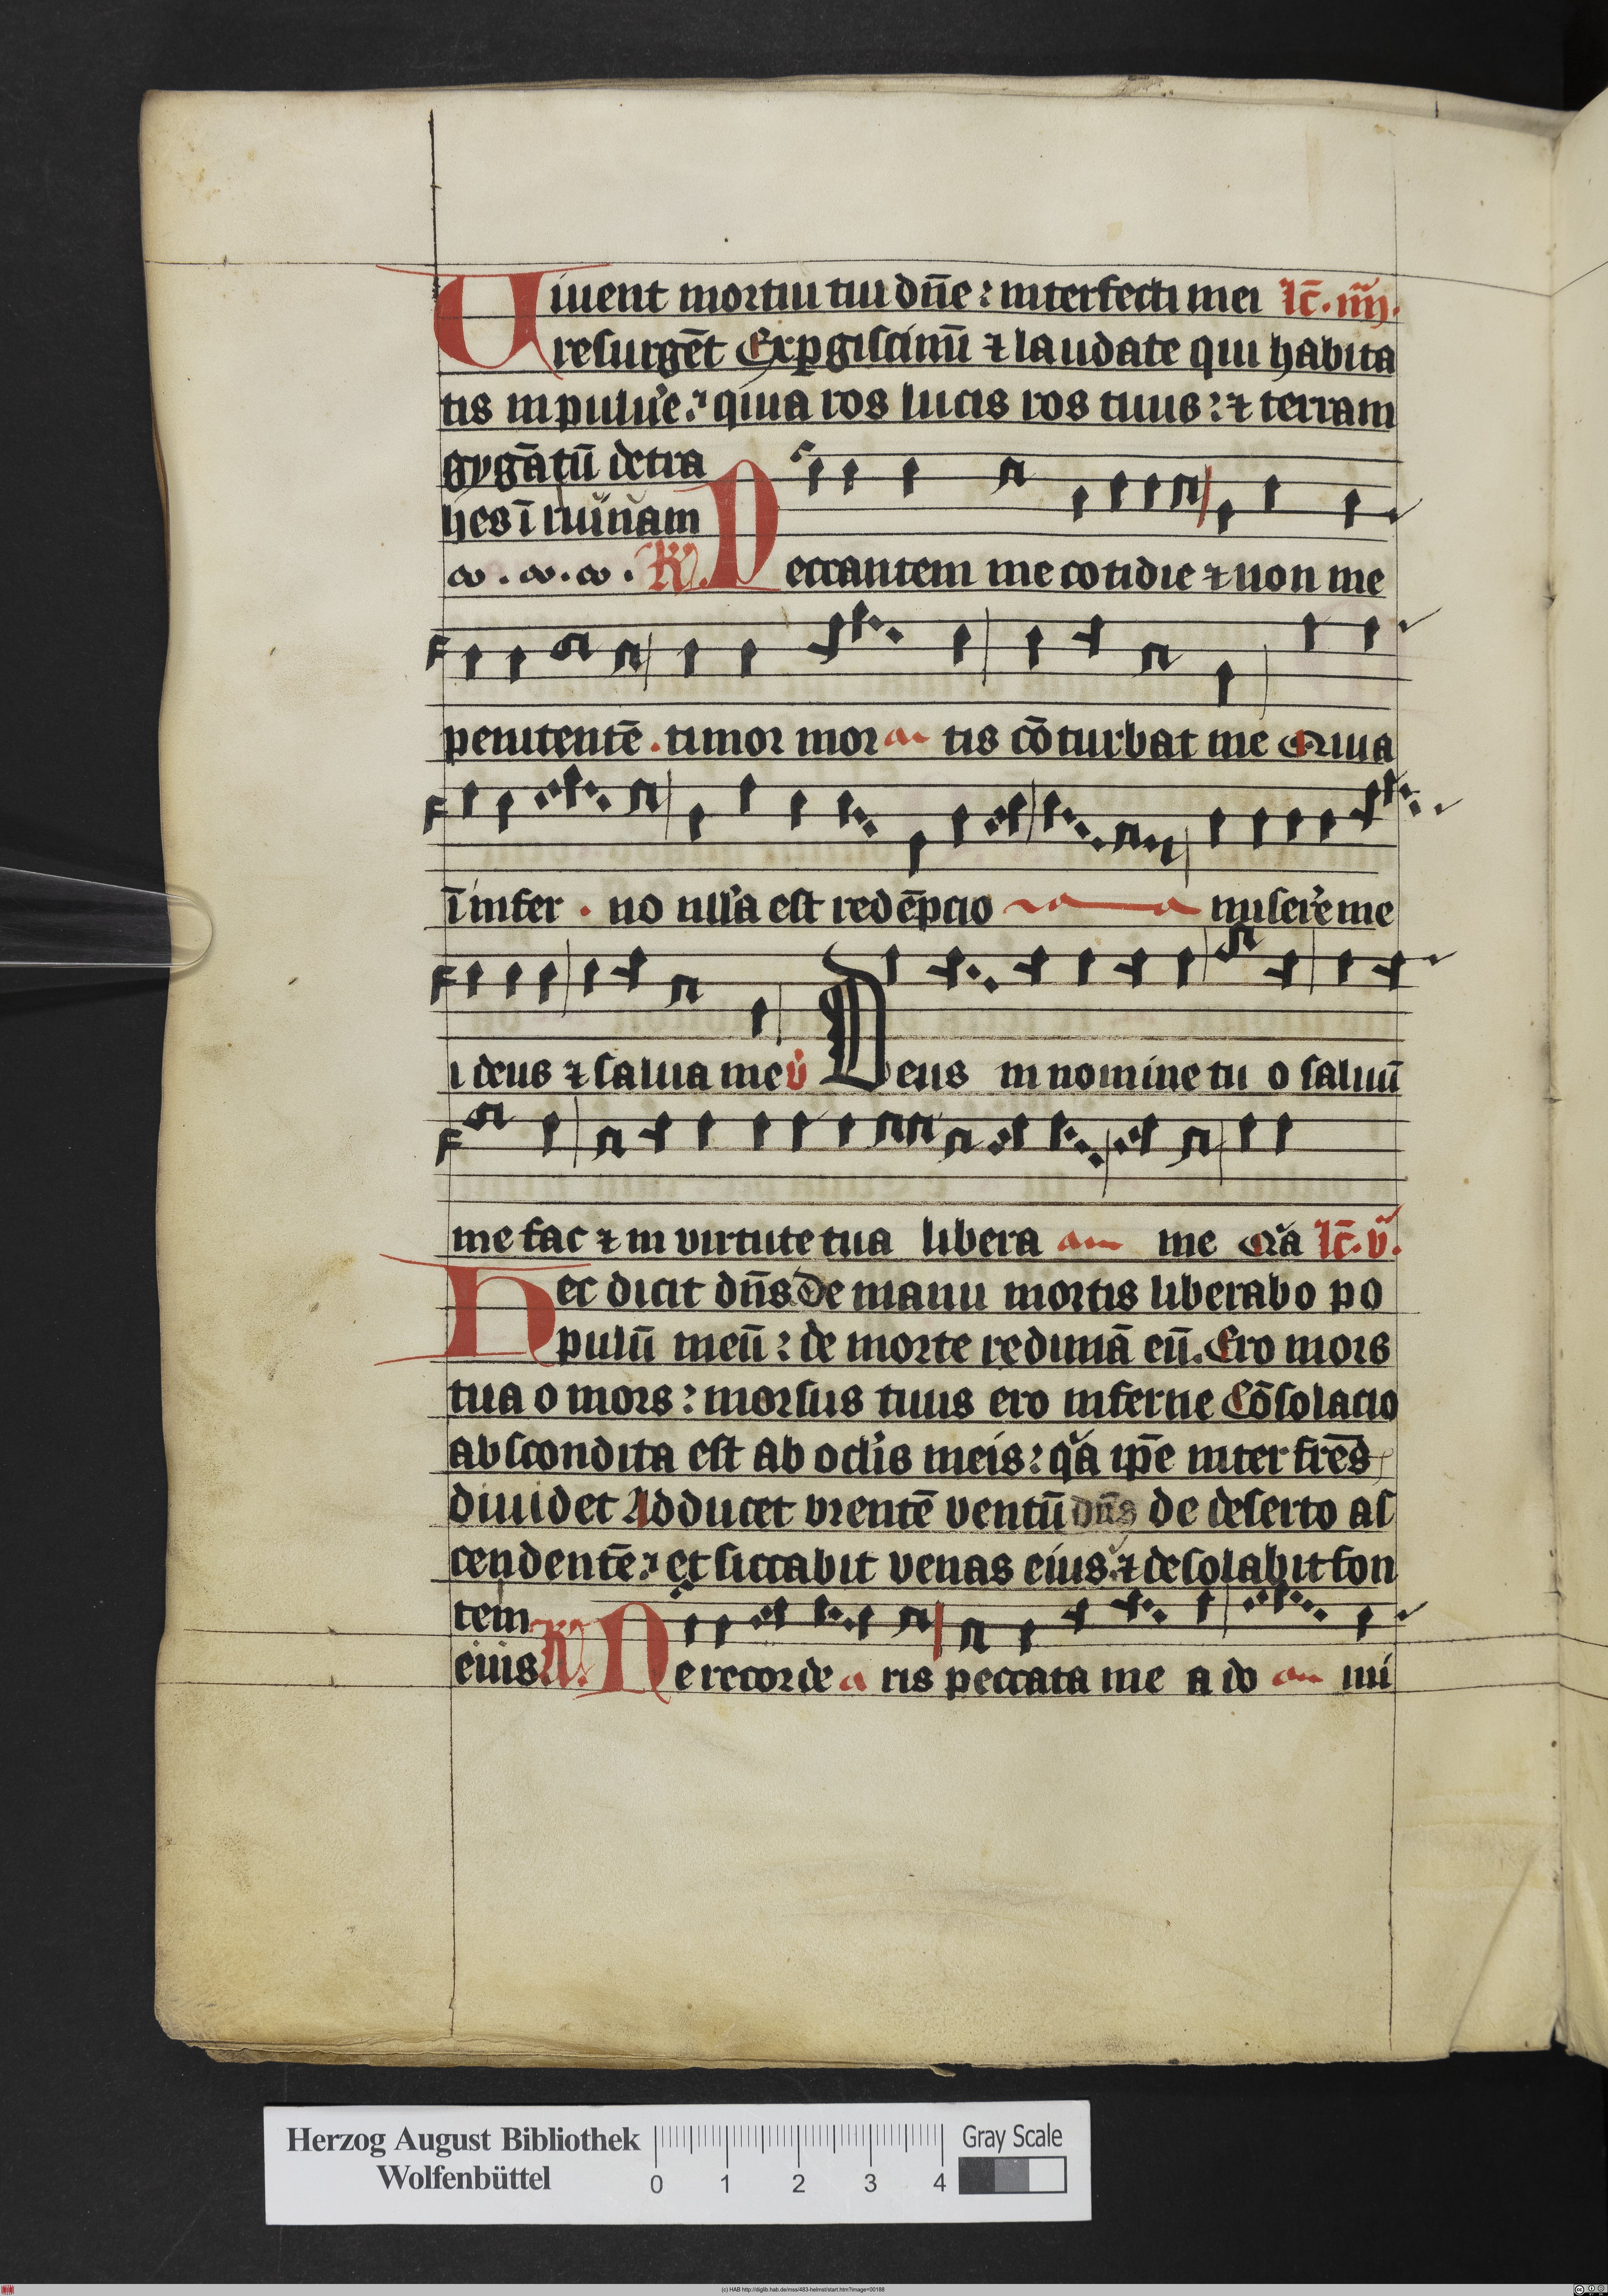 Uiuent mortui tui dn̄e : interfecti mei lc̄. iiij.
resurgēt Exꝑgiscimī ⁊ laudate qui habita
tis in puluꝰe. quia ros lucis ros tuus : ⁊ terram
gygātū detra
hes ī ruinam
Peccantem me cotidie ⁊ non me
penitentē . timor mor tis cōturbat me Quia
ī infer . no nulla est redēpcio miserꝰe me
i deus ⁊ salua me v̇ Deus in nomine tu o saluū
me fac ⁊ in virtute tua libera me Qꝛa lc̄. v.
Hec dicit dn̄s De manu mortis liberabo po
pulū meū : de morte redimā eū. Ero mors
tua o mors : morsus tuus ero inferne Cōsolacio
abscondita est ab oclis meis : qꝛa ip̄e inter fr̄es
diuidet Adducet vrentē ventū dn̄s de deserto as
cendentē : et siccabit venas eius : ⁊ desolabit fon
tem
eius R̸. Ne recorde ris peccata me a do mi
Herzog August Bibliothek
Wolfenbüttel
0 1 2 3 4
Gray Scale
(c) HAB http://diglib.hab.de/mss/483-helmst/start.htm?image=00188